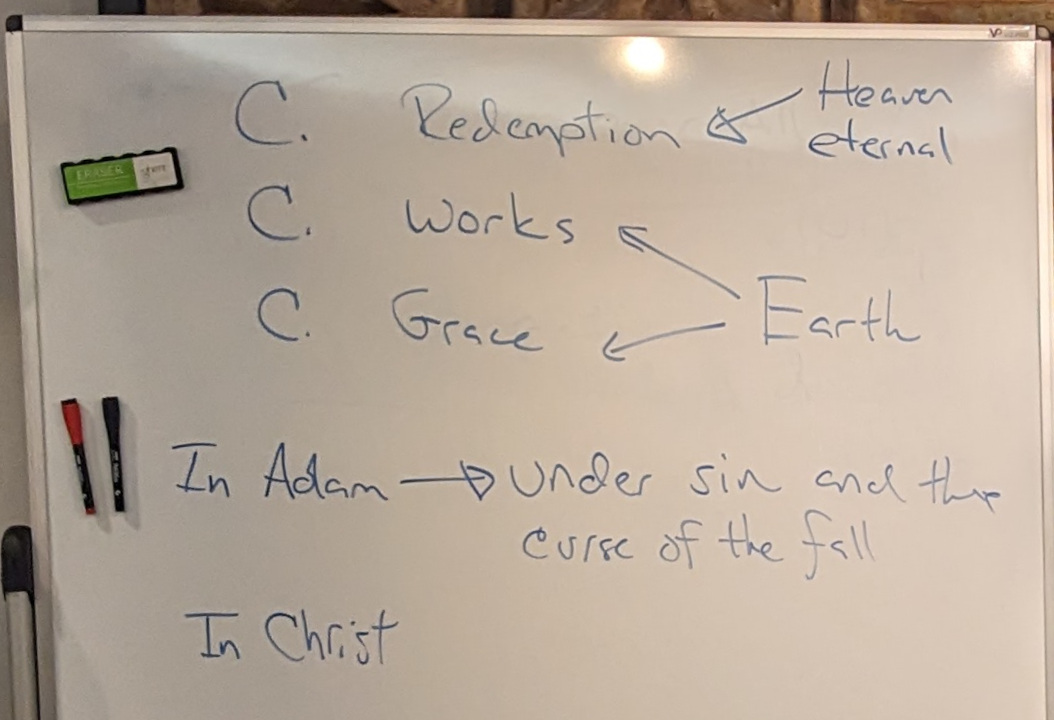 C. Redemption Heaven
eternal
ERASER
C. Works
C. Grace Earth
In Adam → under sin and the
curse of the fall
In Christ